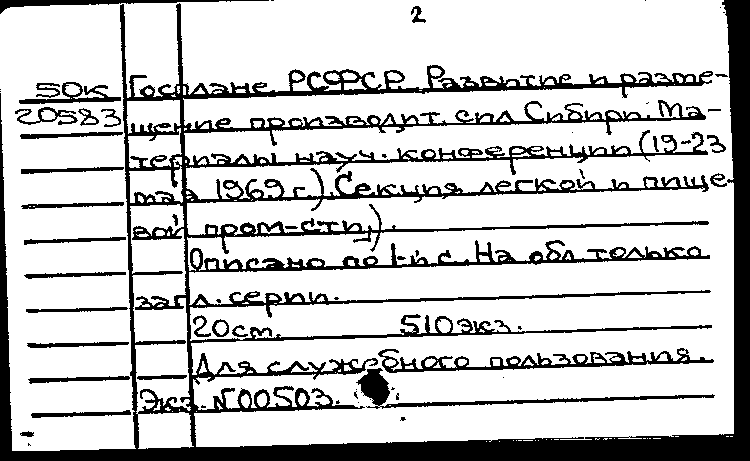 2
50к Госплане РСФСР. Развитие и разме-
20583 щение производит. сил Сибири. Ма-
териалы науч. конференции (19-23
мая 1969 г.). Секция легкой и пище-
вой пром-сти).
Описано по 1-й с. На обл. только
загл. серии.
20 см. 510 экз.
Для служебного пользования.
Экз. №00503.